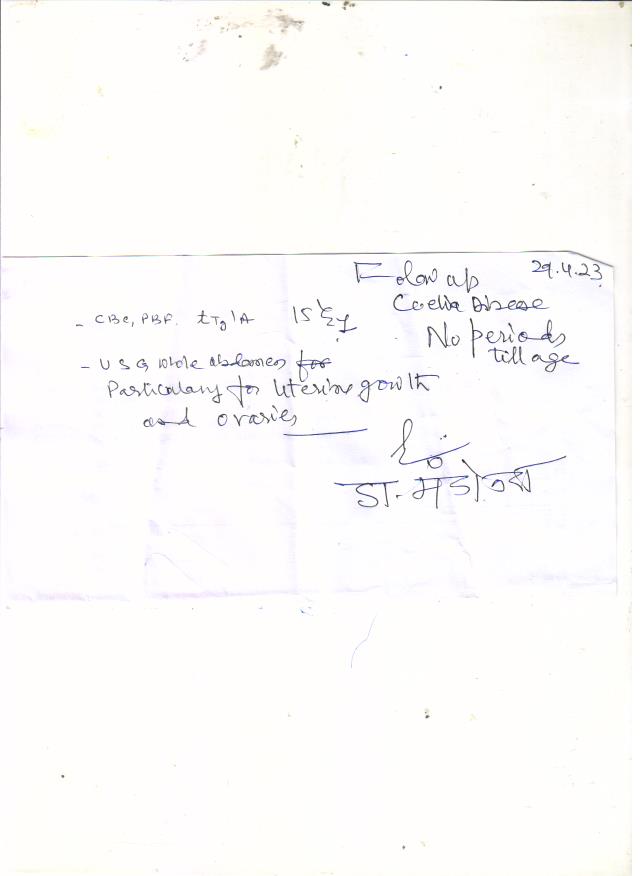 29.4.23
Folow up
Coelia Disease
No periods
till age
- CBC, PBF. tTg 1A 15
- USG whole abdomen for
Particulary for Uterine growth
and ovaries
डा.